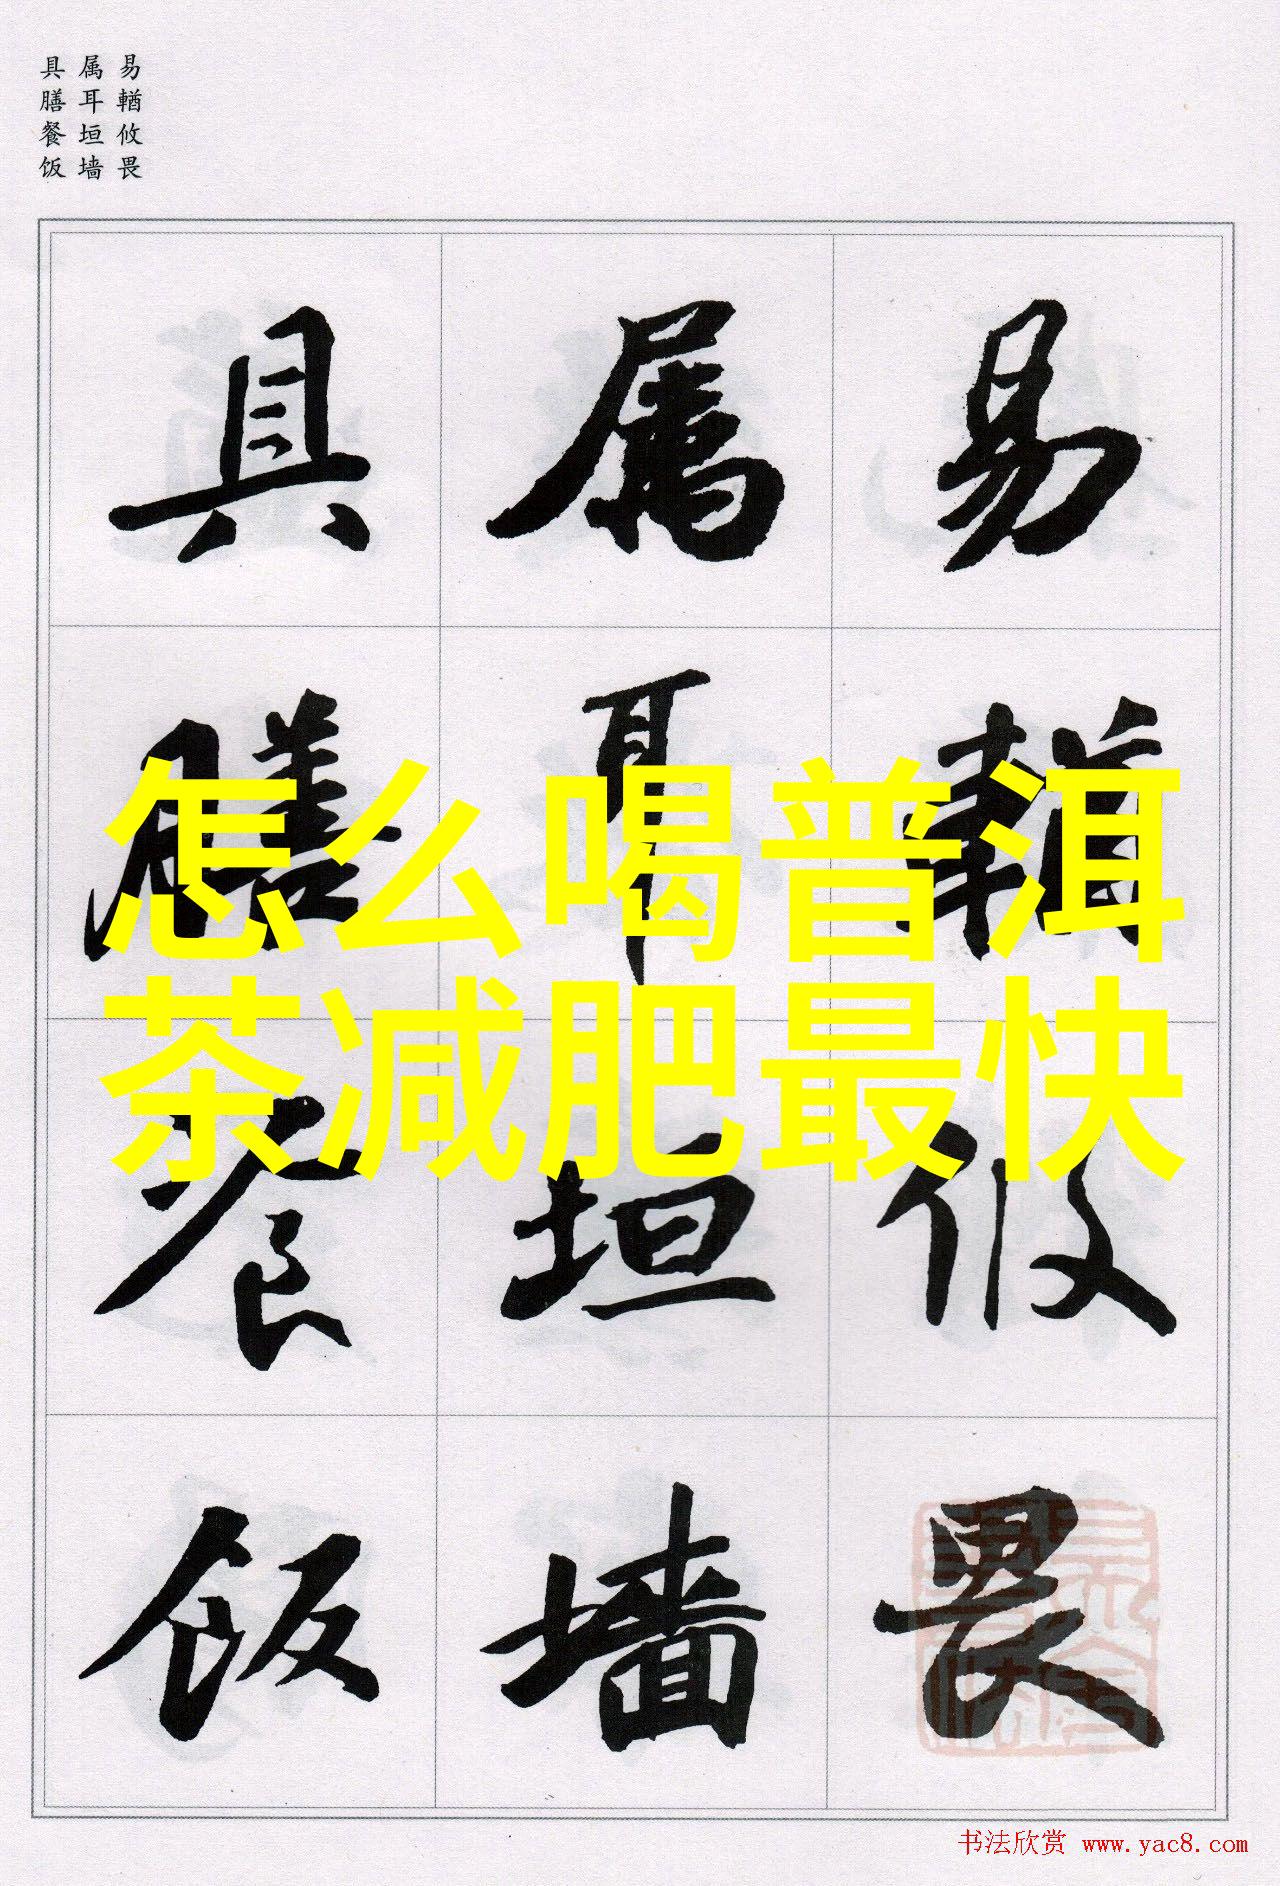 易輶攸畏
属耳垣墙
具膳餐饭
易 輶 攸 畏
属 耳 垣 墙
具 膳 餐 饭
怎么喝普洱
茶减肥最快
书法欣赏 www.yac8.com